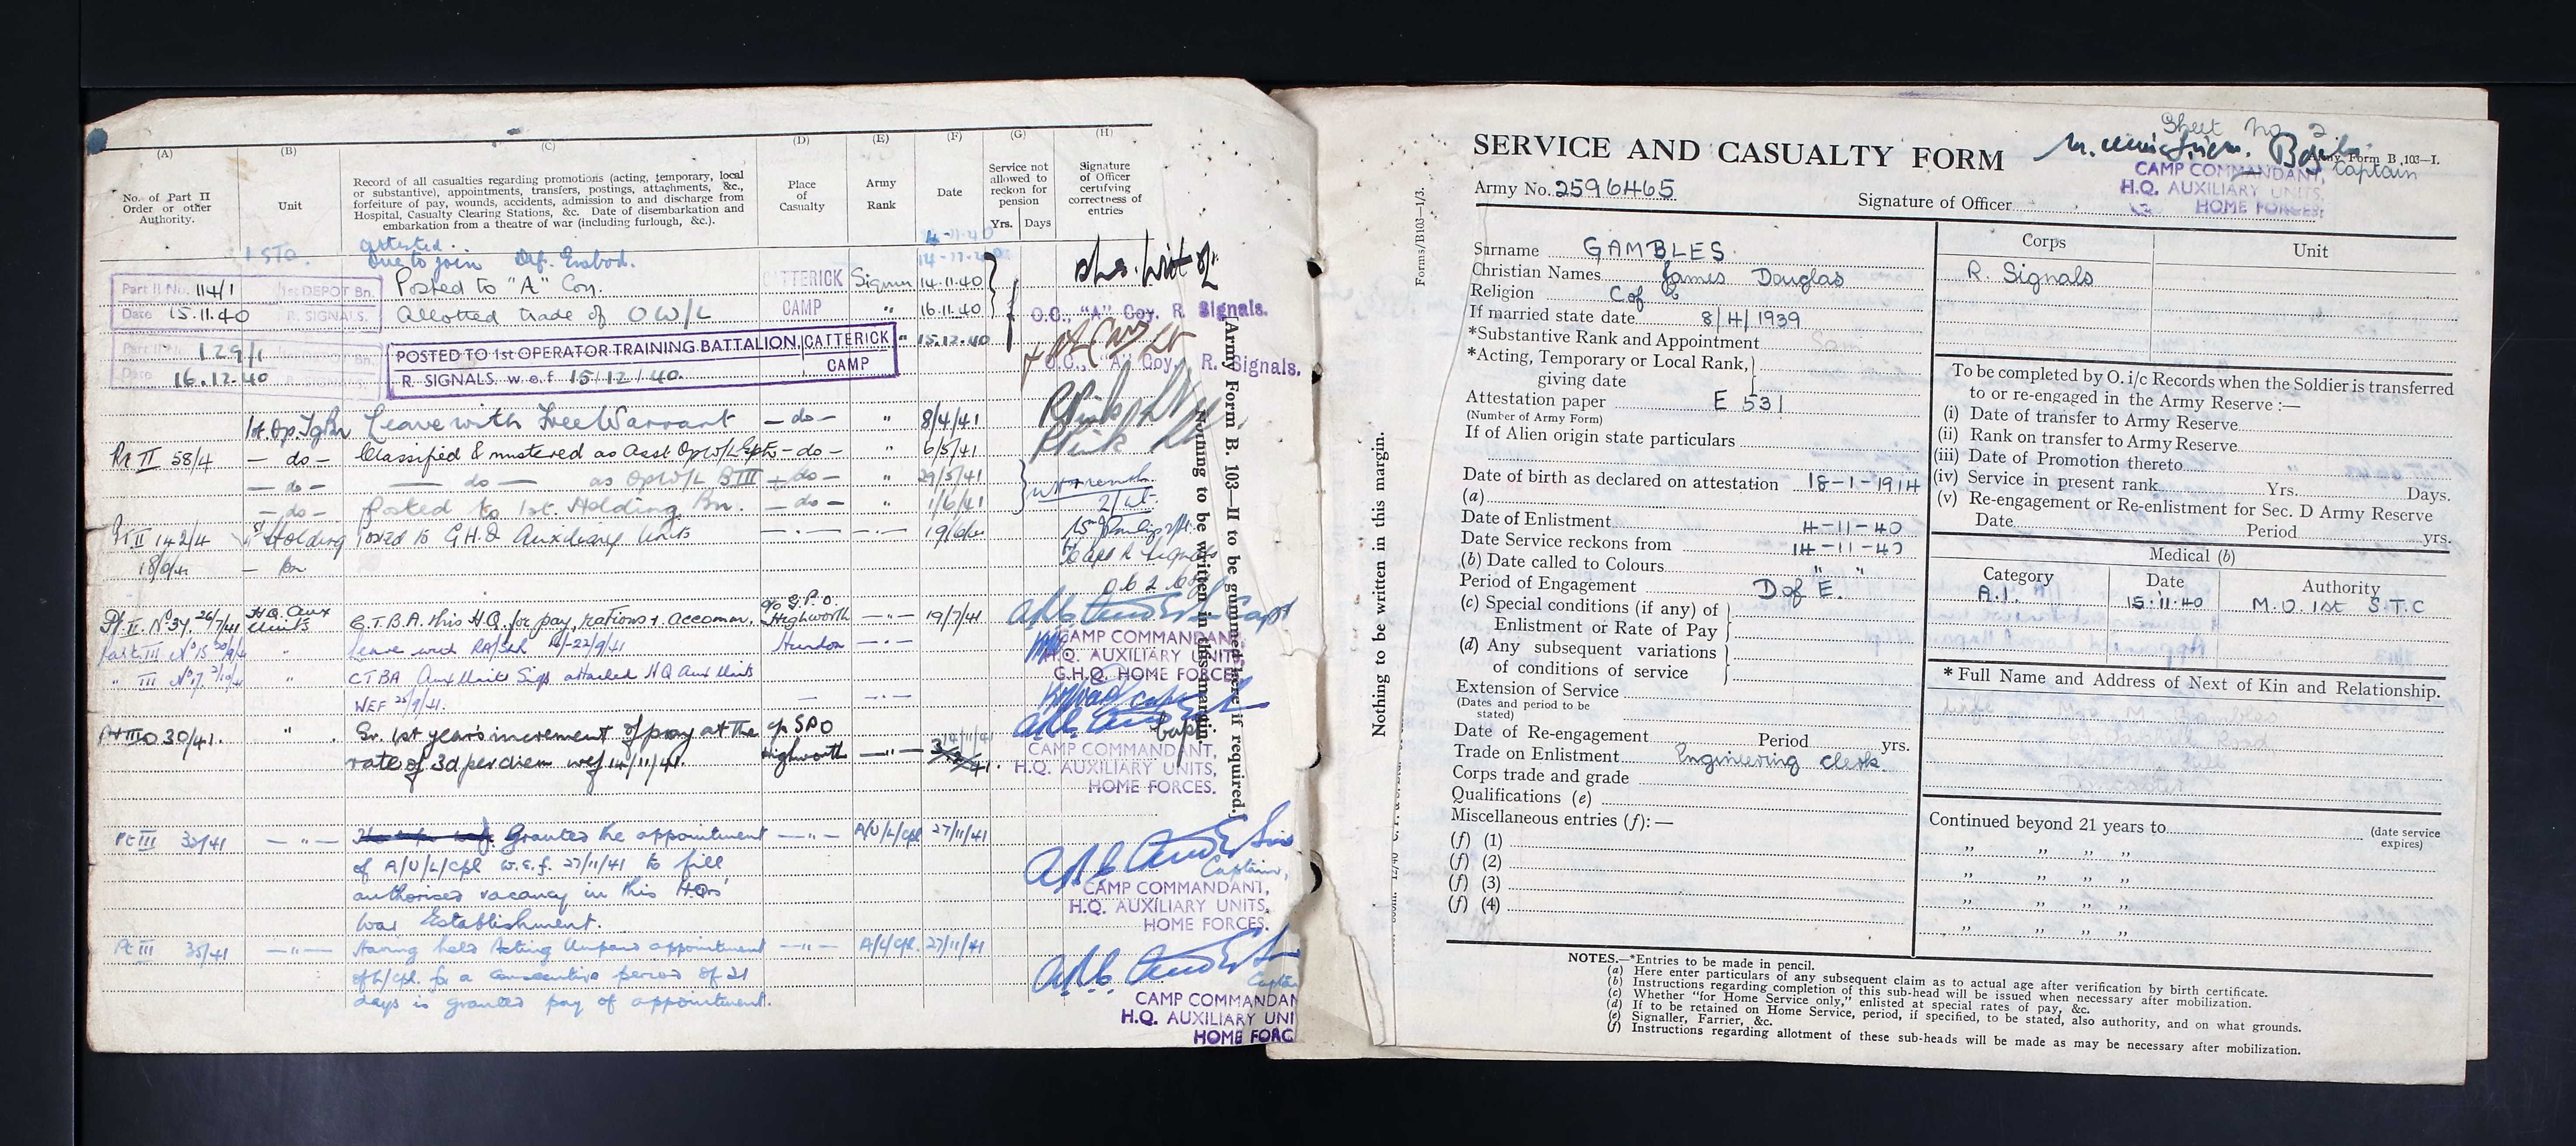 (A) (B) (C) (D) (E) (F) (G) (H)
No. of Part II Order or other Authority.
Unit
Record of all casualties regarding promotions (acting, temporary, local
or substantive), appointments, transfers, postings, attachments, &c.,
forfeiture of pay, wounds, accidents, admission to and discharge from
Hospital, Casualty Clearing Stations, &c. Date of disembarkation and
embarkation from a theatre of war (including furlough, &c.).
Place of Casualty
Army Rank
Date
Service not allowed to reckon for pension
Yrs. Days
Signature of Officer certifying correctness of entries
attested. 4-11-40
1 STO. Due to join Dep. Embod. 14-11-40
Part II No. 114/1 1st DEPOT Bn. Posted to "A" Coy. CATTERICK Signmn 14.11.40
Date 15.11.40 R. SIGNALS. Allotted trade of OW/L CAMP " 16.11.40
O.C., "A" Coy. R. Signals.
129/1 POSTED TO 1st OPERATOR TRAINING BATTALION, CATTERICK " 15.12.40
Date 16.12.40 R. SIGNALS. w.e.f 15/12/40. CAMP
O.C., "A" Coy. R. Signals.
1st Op. Tg Bn Leave with Free Warrant - do - " 8/4/41
Pt II 58/4 - do - Classified & mustered as Asst Op W/L - do - " 6/5/41
- do - - do - as Op W/L BIII - do - " 29/5/41
- do - Posted to 1st. Holding Bn. - do - " 1/6/41
Pt II 142/4 1st Holding Posted to G.H.Q Auxiliary Units
18/6/41 - Bn
c/o G.P.O.
Pt. II No 34. 26/7/41 H.Q. Aux Units C.T.B.A. this H.Q. for pay, rations & accomm. Highworth 19/7/41
CAMP COMMANDANT,
Part III No 15 " Leave with
H.Q. AUXILIARY UNITS,
" III No 17 " CTBA Aux Units Sigs attached HQ Aux Units
G.H.Q. HOME FORCES
WEF 25/9/41.
Pt III O 30/41. " Gr. 1st year's increment of pay at the c/o GPO 14/11/41
rate of 3d per diem wef 14/11/41. Highworth
CAMP COMMANDANT,
H.Q. AUXILIARY UNITS,
HOME FORCES.
Pt III 32/41 - " - Granted the appointment - " - A/U/L/Cpl 27/11/41
of A/U/L/Cpl w.e.f. 27/11/41 to fill
authorised vacancy in this HQrs'
War Establishment.
Captain,
CAMP COMMANDANT,
H.Q. AUXILIARY UNITS,
HOME FORCES.
Pt III 35/41 - " - Having held Acting Unpaid appointment - " - A/L/Cpl. 27/11/41
of L/Cpl. for a consecutive period of 21
days is granted pay of appointment.
CAMP COMMANDAN
H.Q. AUXILIARY UNI
HOME FORC
[Army Form B. 103—II to be gummed here if required.]
Nothing to be written in this margin.
Nothing to be written in this margin.
Forms/B103—1/3.
Sheet No 2
SERVICE AND CASUALTY FORM
Army Form B. 103—I.
Captain
CAMP COMMANDANT,
H.Q. AUXILIARY UNITS,
HOME FORCES.
Army No. 2596465
Signature of Officer
Surname GAMBLES.
Christian Names James Douglas
Religion C of E
If married state date 8/4/1939
*Substantive Rank and Appointment
*Acting, Temporary or Local Rank,
giving date
Attestation paper E 531
(Number of Army Form)
If of Alien origin state particulars
Date of birth as declared on attestation 18-1-1914
(a)
Date of Enlistment 4-11-40
Date Service reckons from 14-11-40
(b) Date called to Colours " "
Period of Engagement D of E.
(c) Special conditions (if any) of
Enlistment or Rate of Pay
(d) Any subsequent variations
of conditions of service
Extension of Service
(Dates and period to be stated)
Date of Re-engagement Period yrs.
Trade on Enlistment Engineering clerk.
Corps trade and grade
Qualifications (e)
Miscellaneous entries (f):—
(f) (1)
(f) (2)
(f) (3)
(f) (4)
Corps Unit
R. Signals
To be completed by O. i/c Records when the Soldier is transferred
to or re-engaged in the Army Reserve :—
(i) Date of transfer to Army Reserve
(ii) Rank on transfer to Army Reserve
(iii) Date of Promotion thereto
(iv) Service in present rank Yrs. Days.
(v) Re-engagement or Re-enlistment for Sec. D Army Reserve
Date Period yrs.
Medical (b)
Category Date Authority
A.1. 15.11.40 M.O. 1st S.T.C
* Full Name and Address of Next of Kin and Relationship.
Continued beyond 21 years to (date service expires)
" " " "
" " " "
" " " "
" " " "
NOTES.—*Entries to be made in pencil.
(a) Here enter particulars of any subsequent claim as to actual age after verification by birth certificate.
(b) Instructions regarding completion of this sub-head will be issued when necessary after mobilization.
(c) Whether "for Home Service only," enlisted at special rates of pay, &c.
(d) If to be retained on Home Service, period, if specified, to be stated, also authority, and on what grounds.
(e) Signaller, Farrier, &c.
(f) Instructions regarding allotment of these sub-heads will be made as may be necessary after mobilization.